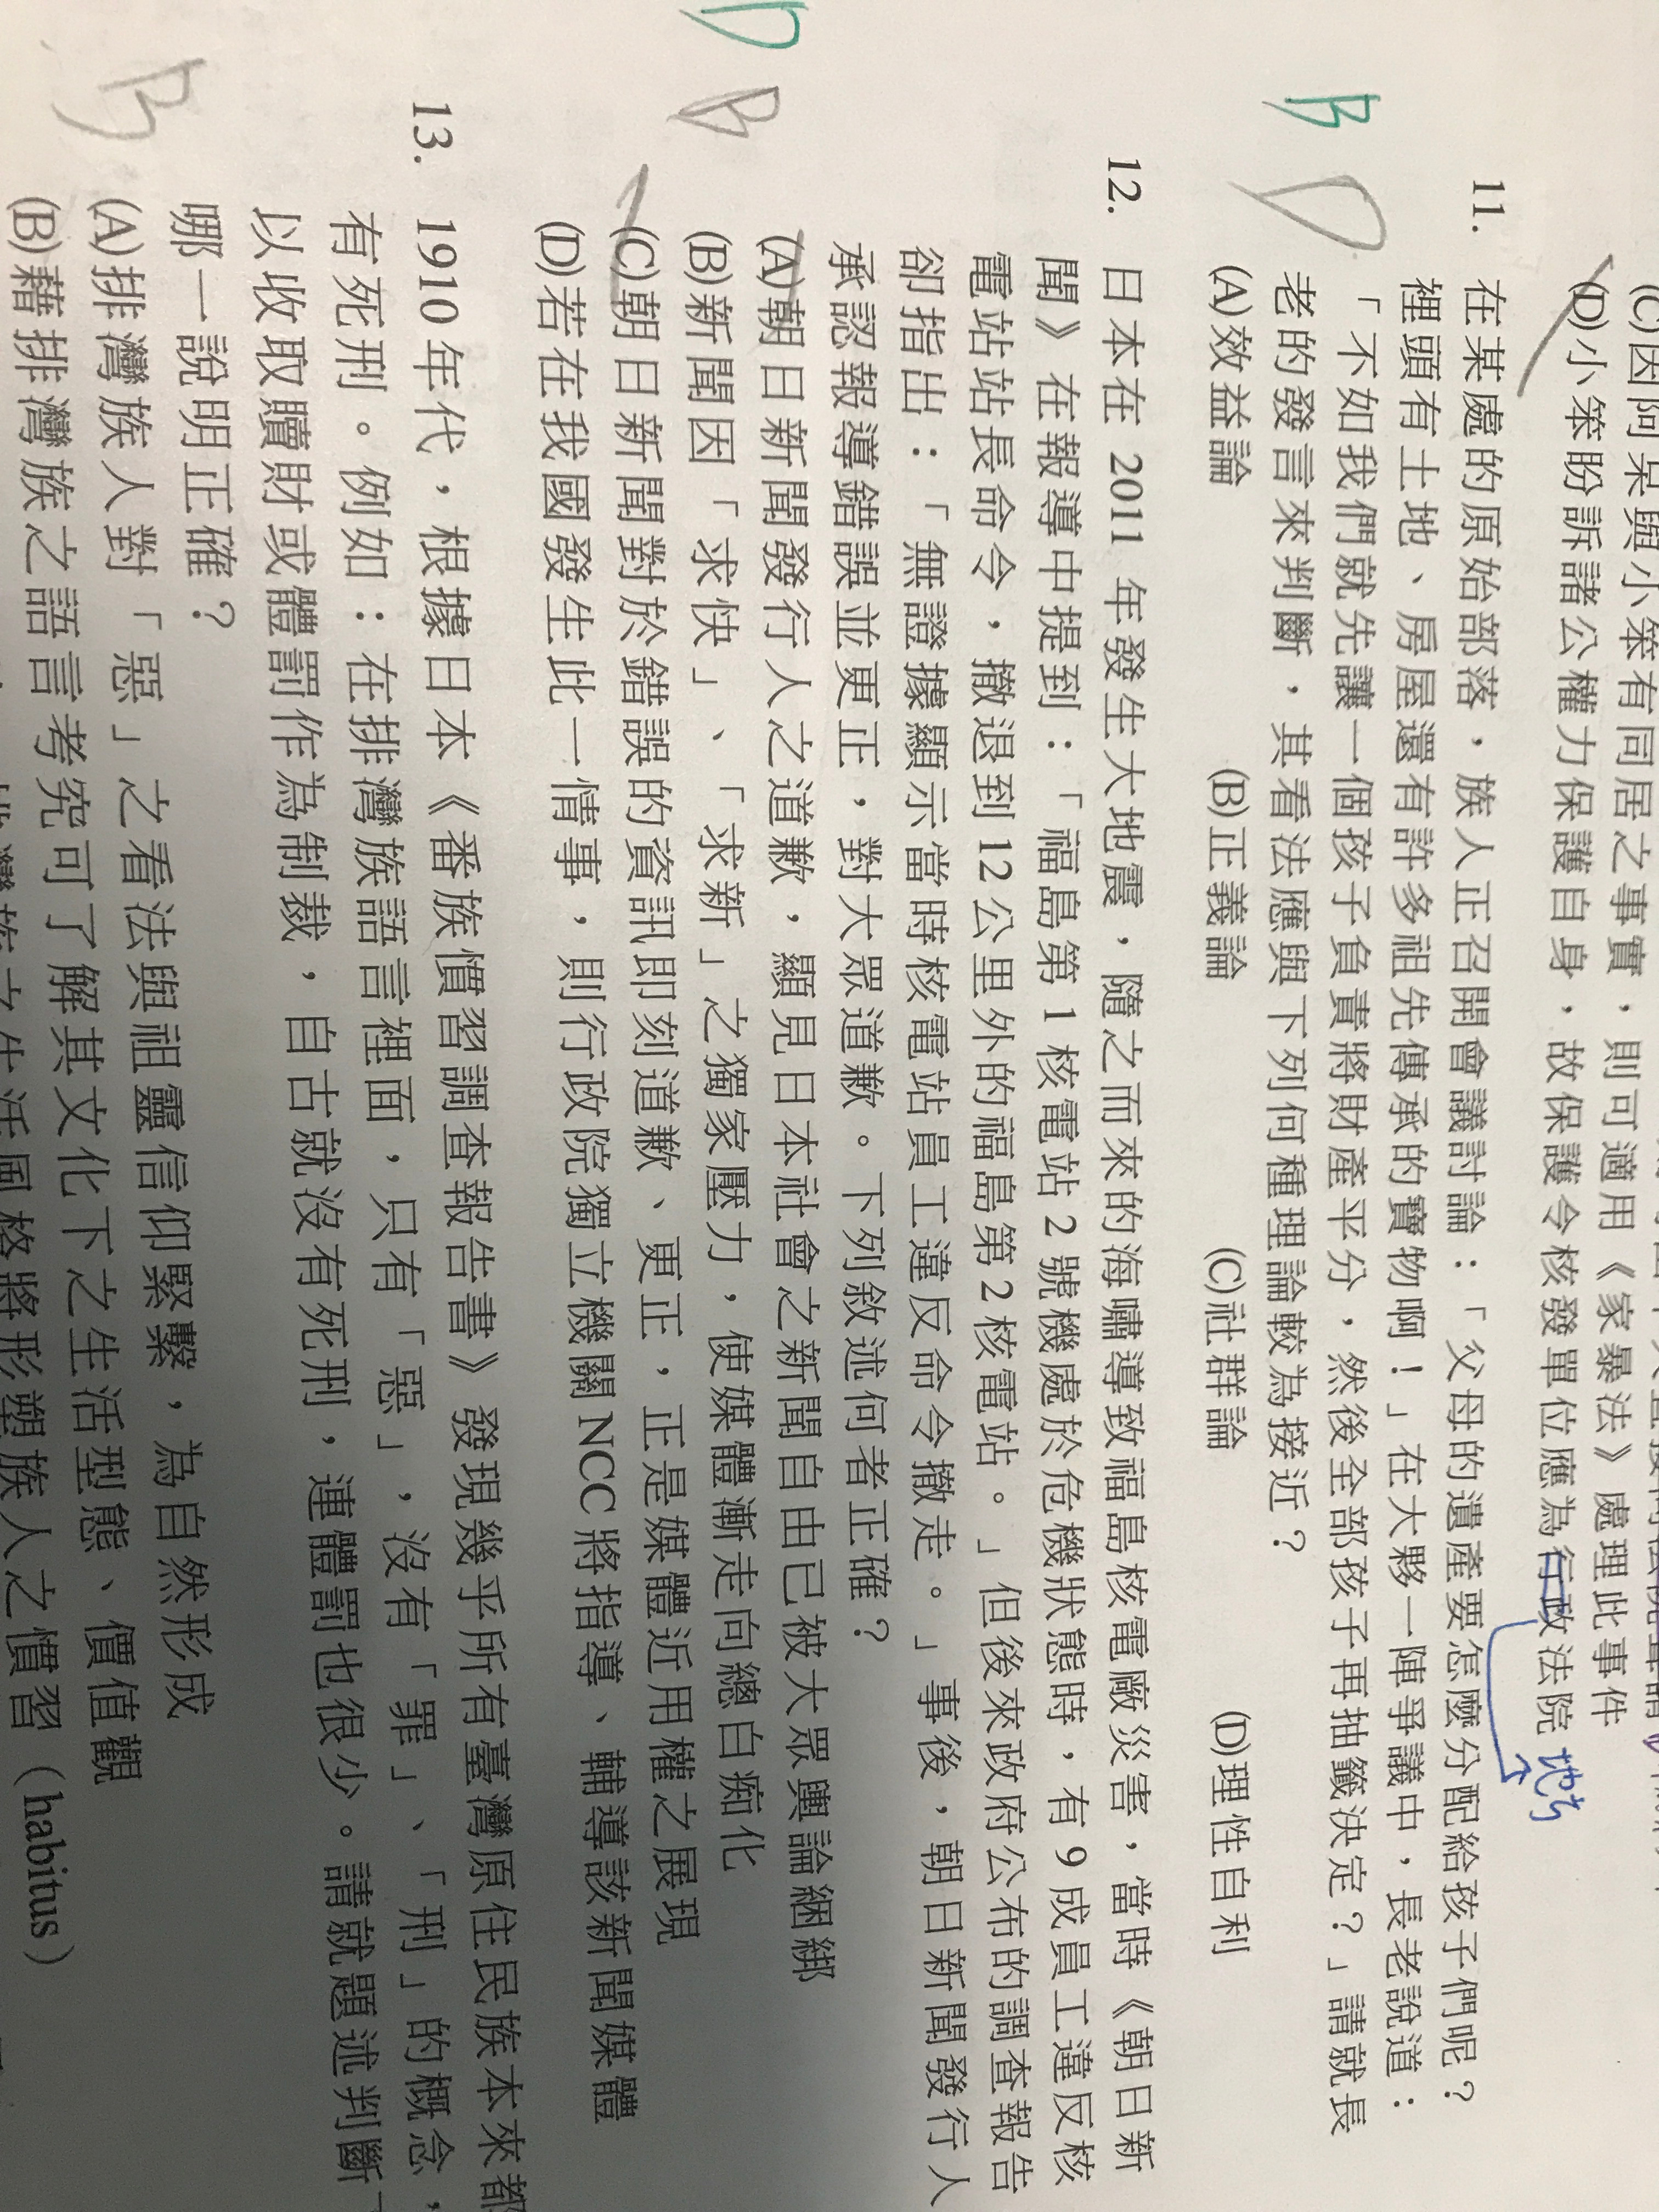 (C)因阿呆與小笨有同居之事實，則可適用《家暴法》處理此事件
(D)小笨盼訴諸公權力保護自身，故保護令核發單位應為行政法院 地方
11. 在某處的原始部落，族人正召開會議討論：「父母的遺產要怎麼分配給孩子們呢？
裡頭有土地、房屋還有許多祖先傳承的寶物啊！」在大夥一陣爭議中，長老說道：
「不如我們就先讓一個孩子負責將財產平分，然後全部孩子再抽籤決定？」請就長
老的發言來判斷，其看法應與下列何種理論較為接近？
B D
(A)效益論 (B)正義論 (C)社群論 (D)理性自利
12. 日本在 2011 年發生大地震，隨之而來的海嘯導致福島核電廠災害，當時《朝日新
聞》在報導中提到：「福島第 1 核電站 2 號機處於危機狀態時，有 9 成員工違反核
電站站長命令，撤退到 12 公里外的福島第 2 核電站。」但後來政府公布的調查報告
卻指出：「無證據顯示當時核電站員工違反命令撤走。」事後，朝日新聞發行人
承認報導錯誤並更正，對大眾道歉。下列敘述何者正確？
D B
(A)朝日新聞發行人之道歉，顯見日本社會之新聞自由已被大眾輿論綑綁
(B)新聞因「求快」、「求新」之獨家壓力，使媒體漸走向總白痴化
(C)朝日新聞對於錯誤的資訊即刻道歉、更正，正是媒體近用權之展現
(D)若在我國發生此一情事，則行政院獨立機關 NCC 將指導、輔導該新聞媒體
13. 1910 年代，根據日本《番族慣習調查報告書》發現幾乎所有臺灣原住民族本來都
有死刑。例如：在排灣族語言裡面，只有「惡」，沒有「罪」、「刑」的概念，
以收取贖財或體罰作為制裁，自古就沒有死刑，連體罰也很少。請就題述判斷下
哪一說明正確？
B
(A)排灣族人對「惡」之看法與祖靈信仰緊繫，為自然形成
(B)藉排灣族之語言考究可了解其文化下之生活型態、價值觀
排灣族之生活風格將形塑族人之慣習（habitus）